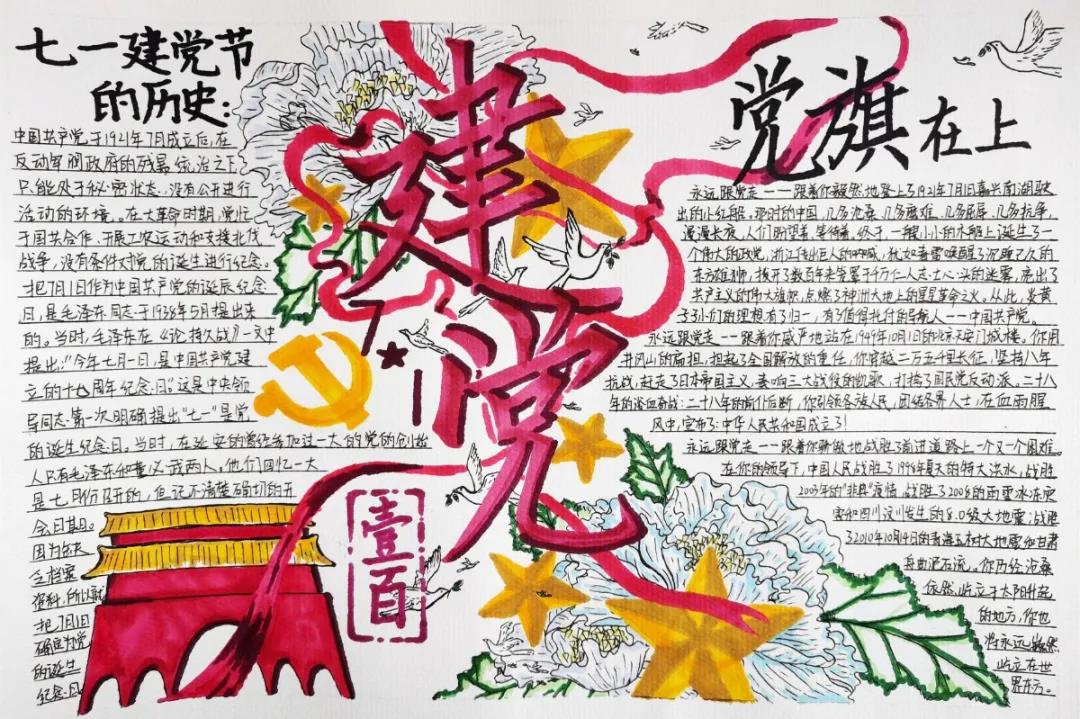 七一建党节
的历史:
中国共产党于1921年7月成立后,在
反动军阀政府的残暴统治之下
只能处于秘密状态,没有公开进行
活动的环境。在大革命时期,党忙
于国共合作、开展工农运动和支援北伐
战争,没有条件对党的诞生进行纪念。
把7月1日作为中国共产党的诞辰纪念
日,是毛泽东同志于1938年5月提出来
的。当时,毛泽东在《论持久战》一文中
提出:"今年七月一日,是中国共产党建
立的十七周年纪念日"这是中央领
导同志第一次明确提出"七一"是党
的诞生纪念日。当时,在延安的曾经参加过一大的党的创始
人只有毛泽东和董必武两人。他们回忆一大
是七月份召开的,但记不清楚确切的开
会日期。
因为缺
乏档案
资料,所以就
把7月1日
确定为党
的诞生
纪念日
建党
7 1
壹百
党旗在上
永远跟党走——跟着你毅然地登上了1921年7月1日嘉兴南湖驶
出的小红船。那时的中国,几多沧桑,几多磨难,几多屈辱,几多抗争,
漫漫长夜,人们盼望着,等待着,终于,一艘小小的木船上诞生了一
个伟大的政党,浙江传出巨人的呐喊,犹如春雷唤醒了沉睡已久的
东方雄狮,拨开了数百年来笼罩千万仁人志士心头的迷雾,亮出了
共产主义的伟大旗帜,点燃了神州大地上的星星革命之火,从此,炎黄
子孙们的理想有了归一,有了值得托付的导航人——中国共产党。
永远跟党走——跟着你威严地站在1949年10月1日的北京天安门城楼。你用
井冈山的扁担,担起了全国解放的重任,你穿越二万五千里长征,坚持八年
抗战,赶走了日本帝国主义,奏响三大战役的凯歌,打垮了国民党反动派。二十八
年的浴血奋战:二十八年的前仆后继,你引领各族人民,团结各界人士,在血雨腥
风中,宣布了:中华人民共和国成立了!
永远跟党走——跟着你骄傲地战胜了前进道路上一个又一个困难。
在你的领导下,中国人民战胜了1998年夏天的特大洪水,战胜
2003年的"非典"疫情,战胜了2008的雨雪冰冻灾
害和四川汶川发生的8.0级大地震;战胜
了2010年10月14日的青海玉树大地震和甘肃
舟曲泥石流。你历经沧桑
依然屹立于太阳升起
的地方,你也
将永远巍然
屹立在世
界东方。